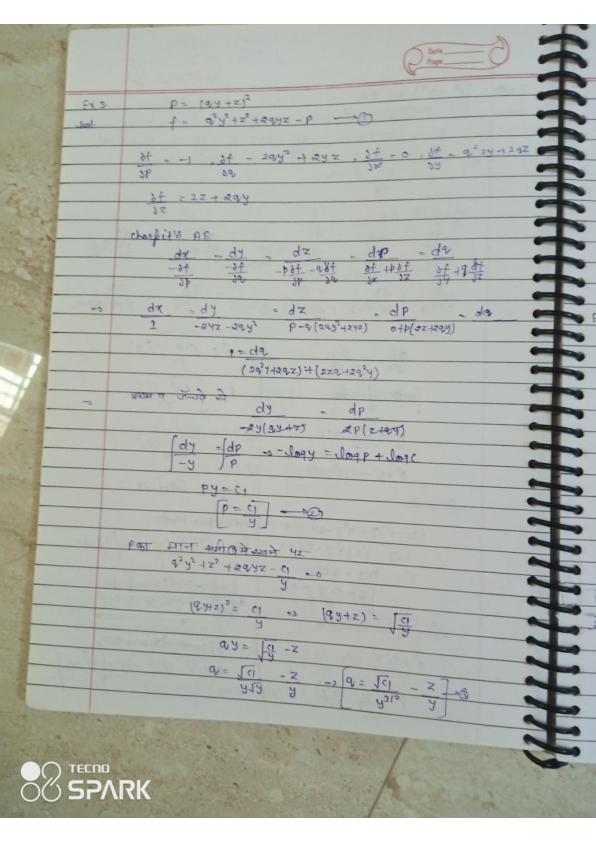 Date
Page
Ex 3 P = (qy + z)²
Sol. f = q²y² + z² + 2qyz - p → ①
∂f/∂p = -1, ∂f/∂q - 2qy² + 2yz, ∂f/∂x = 0, ∂f/∂y = q²2y + 2qz
∂f/∂z = 2z + 2qy
Charpit's AE
dx/(-∂f/∂p) = dy/(-∂f/∂q) = dz/(-p∂f/∂p - q∂f/∂q) = dp/(∂f/∂x + p∂f/∂z) = dq/(∂f/∂y + q∂f/∂z)
→ dx/1 = dy/(-2yz - 2qy²) = dz/(p - q(2qy² + 2yz)) = dp/(0 + p(2z + 2qy)) = dq
= dq/((2q²y + 2qz) + (2zq + 2q²y))
= व से
dy/(-2y(qy + z)) = dp/(2p(z + qy))
∫dy/-y = ∫dp/p → -logy = logp + logc
py = c₁
[p = c₁/y] → ②
P का मान समी ① में रखने पर
q²y² + z² + 2qyz - c₁/y = 0
(qy + z)² = c₁/y ⇒ (qy + z) = √(c₁/y)
qy = √(c₁/y) - z
q = √c₁/(y√y) - z/y → [q = √c₁/y^(3/2) - z/y] → ③
TECNO
SPARK